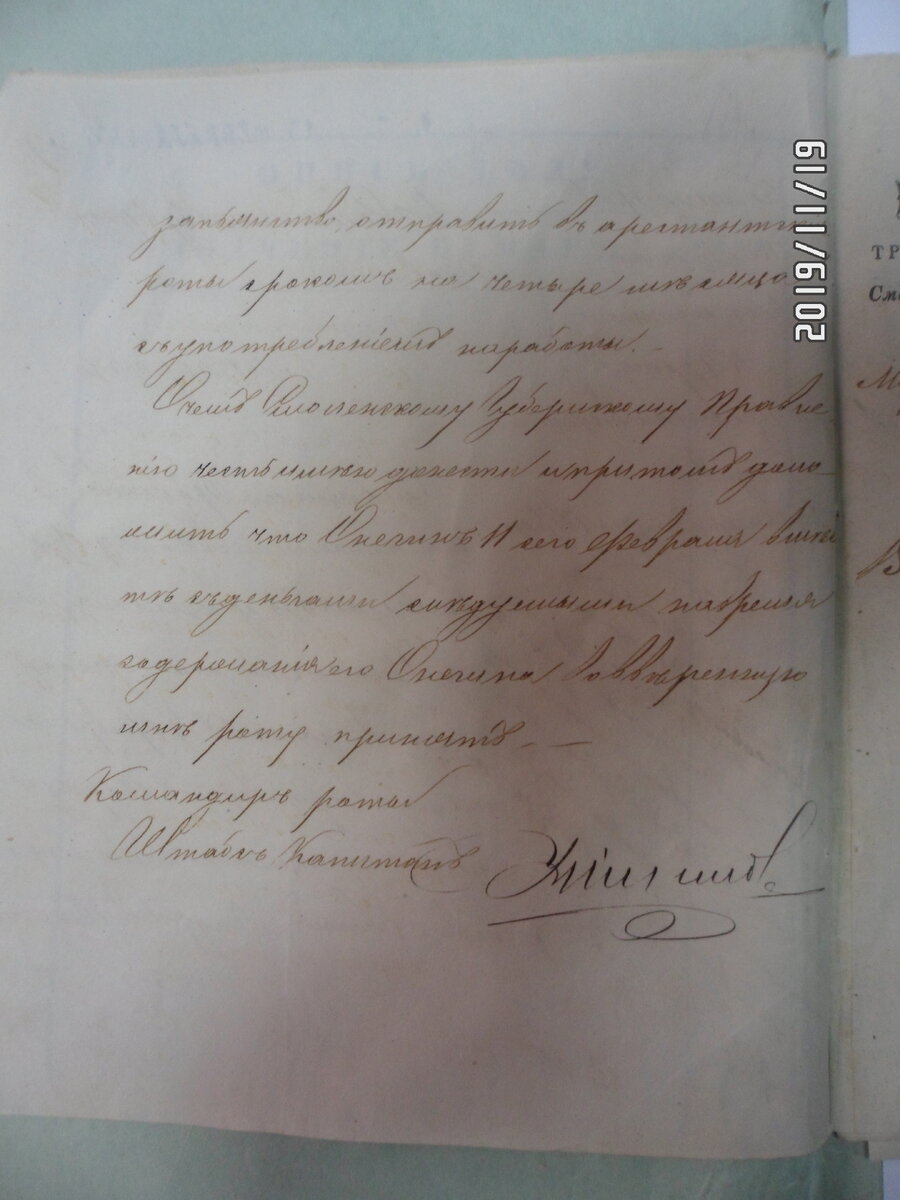 запьянство, отправить въ арестантскі
роты срокомъ на четыре мѣсяца
съупотребленіемъ наработы. —
О чемъ Смоленскому Губернскому Правле
нію честь имѣю донести и притомъ допо-
лнить что Онегинъ 11 сего Февраля вмѣс
тѣ съденьгами слѣдуемыми навремя
содержанія его Онегина вовввѣренную
мнѣ роту принятъ — —
Командиръ роты
Штабсъ Капитанъ
2019/11/19
ТР
См
М
В